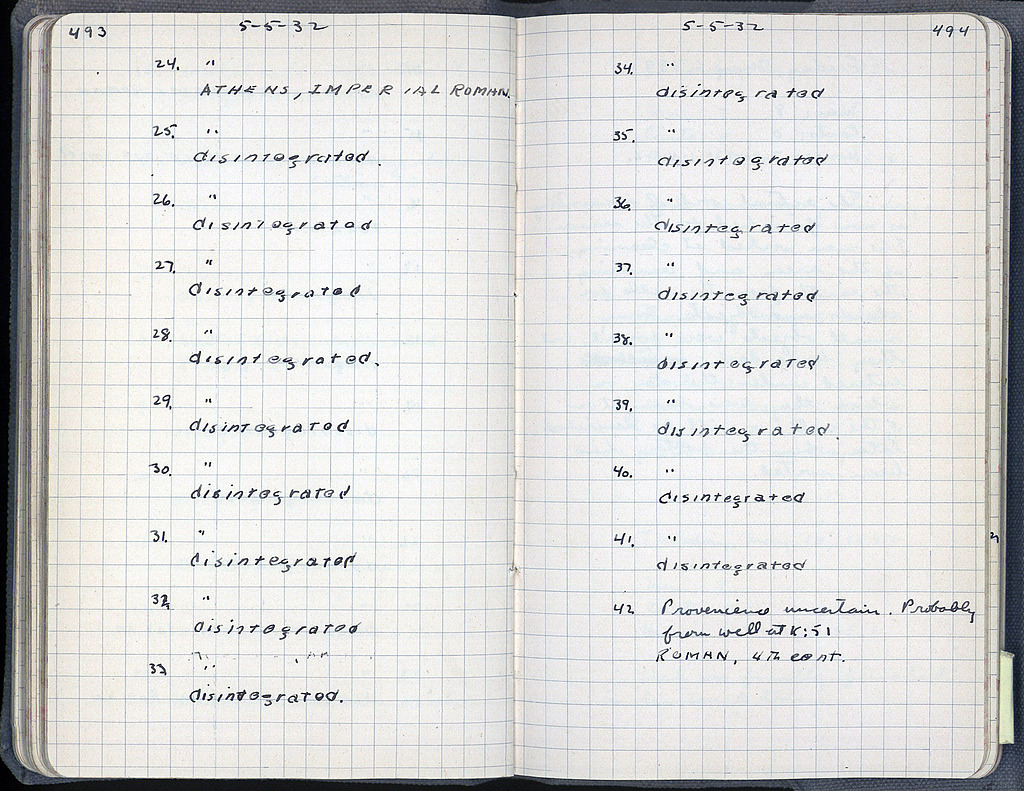 493
5-5-32
24. "
ATHENS, IMPERIAL ROMAN.
25. "
disintegrated.
26. "
disintegrated
27. "
disintegrated
28. "
disintegrated.
29. "
disintegrated
30. "
disintegrated
31. "
disintegrated
32. "
disintegrated
33. "
disintegrated.
5-5-32
494
34. "
disintegrated
35. "
disintegrated
36. "
disintegrated
37. "
disintegrated
38. "
disintegrated
39. "
disintegrated.
40. "
disintegrated
41. "
disintegrated
42. Provenience uncertain. Probably
from well at K:51
ROMAN, 4th cent.